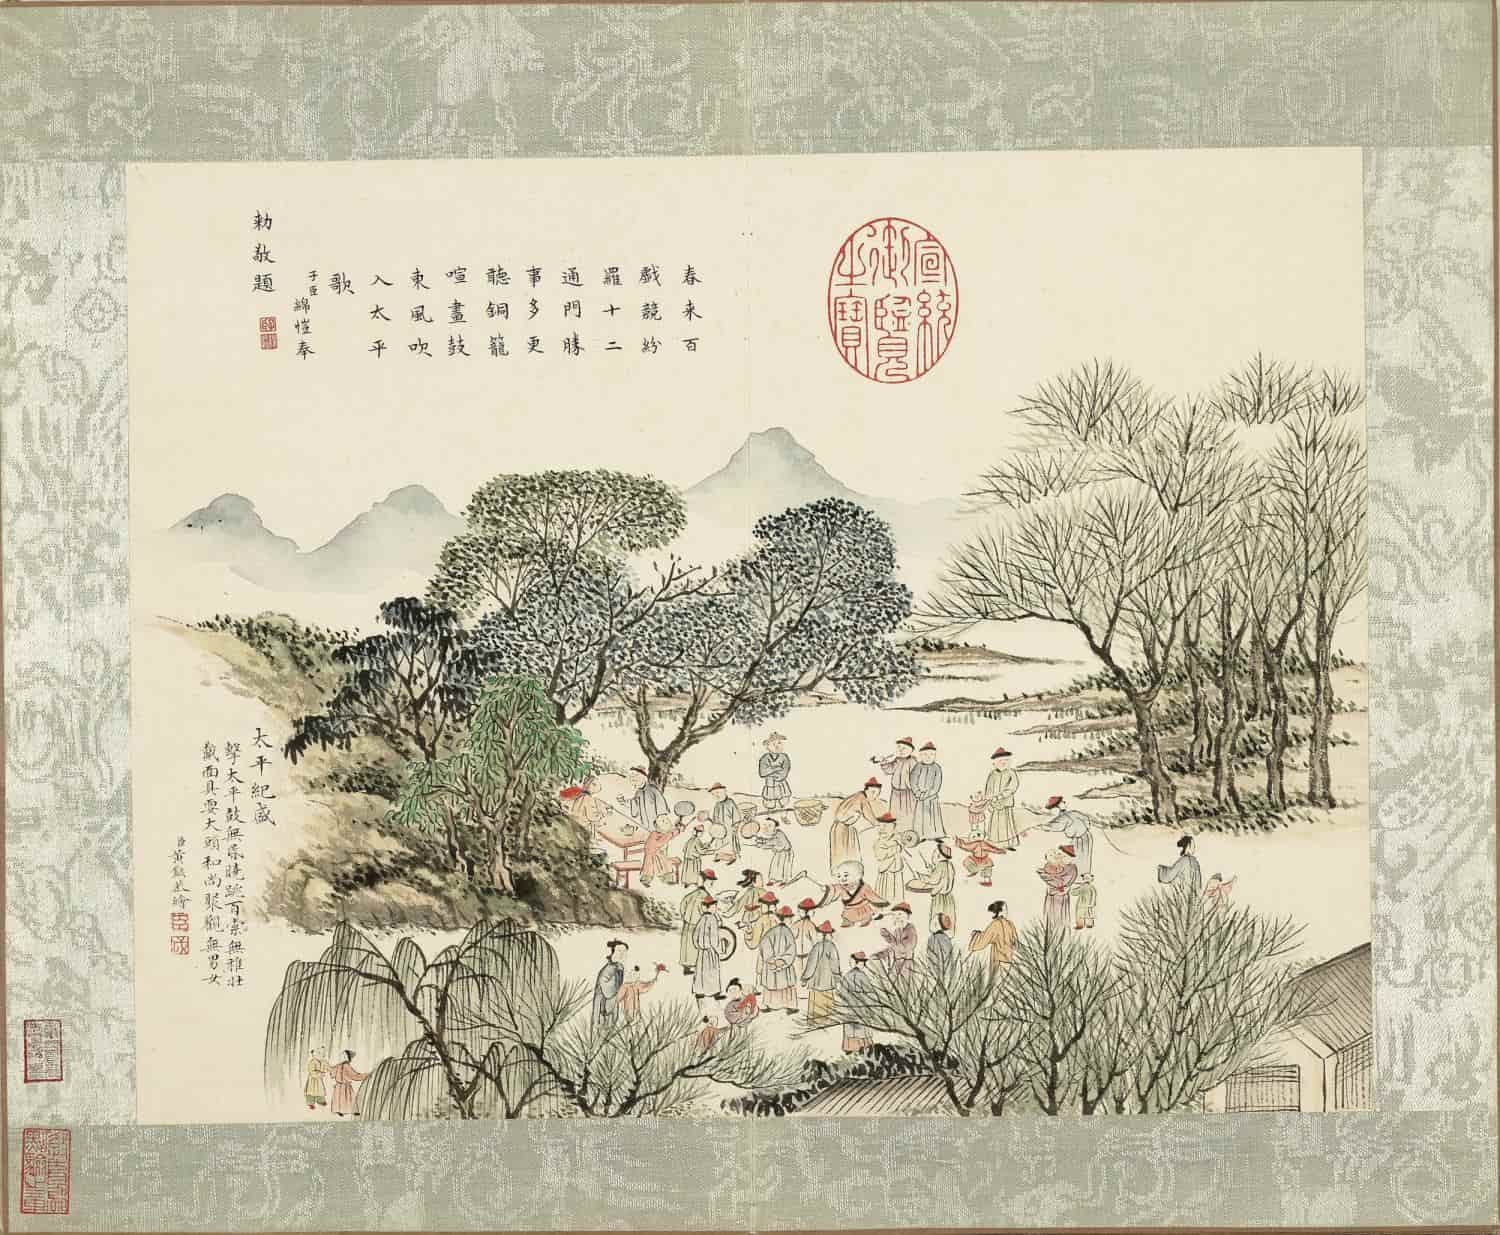 宣統
御覽
之寶
春来百
戲競紛
羅十二
通門勝
事多更
聽銅籠
喧畫鼓
東風吹
入太平
歌
子臣綿愷奉
勅敬題
太平紀盛
擊太平鼓無昏曉跳百索無稚壯
戴面具耍大頭和尚聚觀無男女
臣黃鉞恭繪